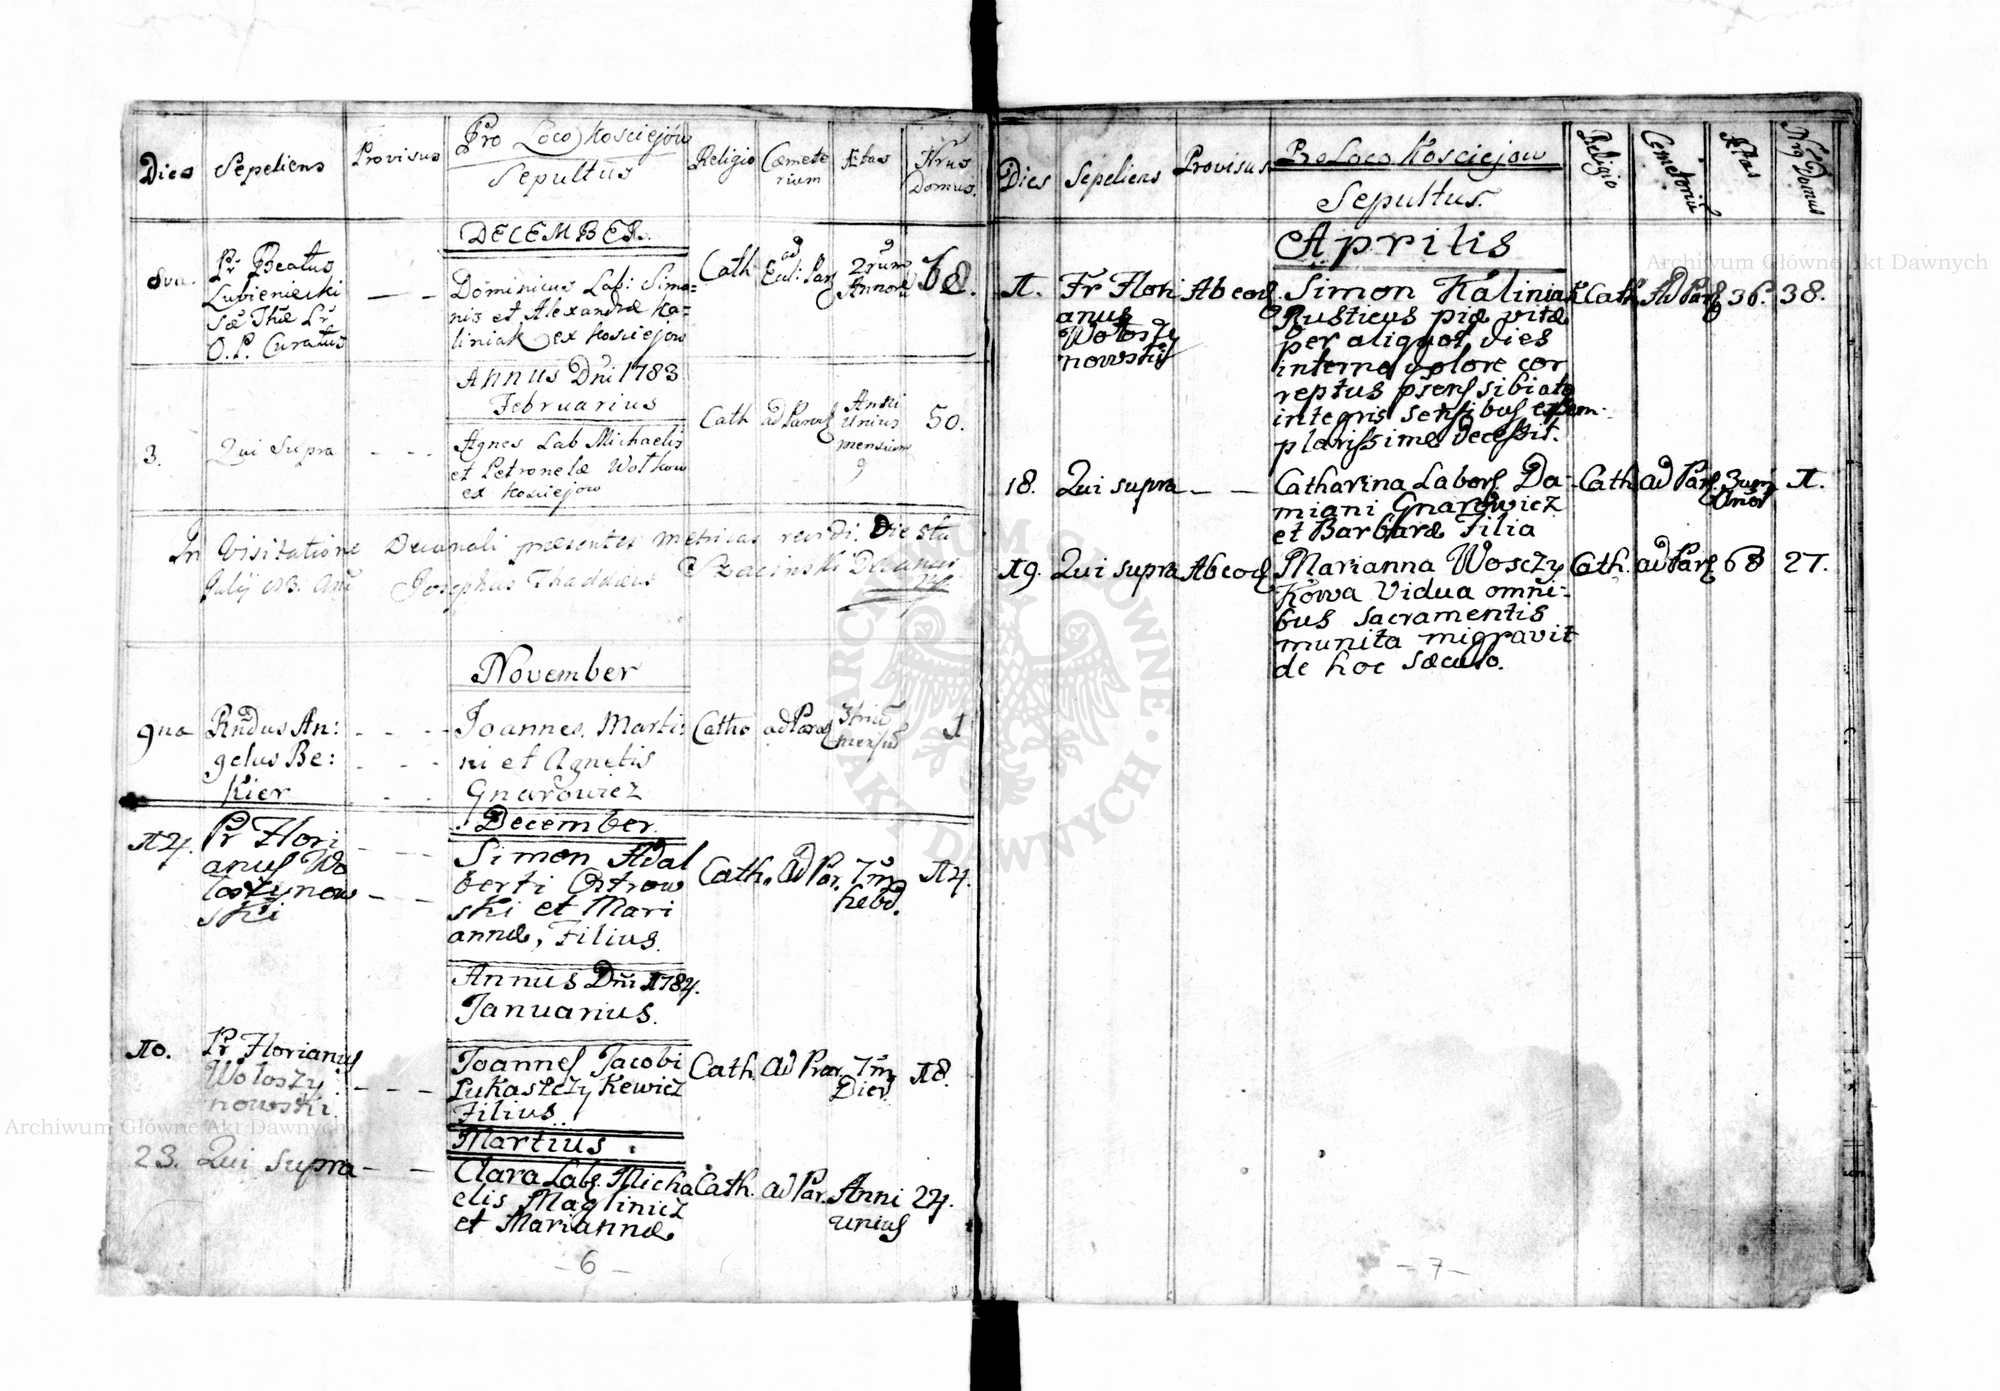 Dies Sepeliens Provisus Pro Loco Kosciejow Sepultus Religio Cæmete rium Ætas Nrus Domus.
DECEMBER.
8va. Pr Beatus
Lubieniecki
Sæ Thæ Lr
O.P. Curatus
— —
Dominicus Lab: Simo=
nis et Alexandræ Ka=
liniak ex Kosciejow
Cath
ad
Eccl: Par
2rum
Annorũ
68.
Annus Dñi 1783
Februarius
3. Qui Supra - - -
Agnes Lab Michaelis
et Petronelæ Wołkow
ex Kosciejow
Cath ad Paroch
Anni
Unius
mensium
9
50.
In Visitatione Decanali præsentes metricas Die 5ta
Julij 783. Josephus Thaddæus Decanus
November
9na Rñdus An:
gelus Be:
kier
Joannes. Marti:
ni et Agnetis
Gnarowicz
Catho ad Paroch
3triũ
mensiũ
1
December.
14. Pr Flori
anus Wo
łoszynow
ski
Simon Adal
berti Ostrow
ski et Mari
annæ, Filius.
Cath. ad Par. 7m
hebd.
14.
Annus Dñi 1784.
Januarius.
10. Pr Florianus
Wołoszy
nowski.
Joannes Jacobi
Łukaszczykewicz
Filius
Cath. ad Par. 7m
Dier
18.
Martius.
23. Qui supra — —
Clara Lab. Micha
elis Maglinicz
et Mariannæ
Cath. ad Par. Anni
unius
24.
- 6 -
Dies Sepeliens Provisus Pro Loco Kosciejow
Sepultus.
Religio Cemeteriũ Ætas Nrũs Domus
Aprilis
11. Fr Flori
anus
Wołoszy
nowski
Ab eod
Simon Kaliniak
Rusticus piæ vitæ
per aliquot dies
interno dolore cor
reptus psens sibi ato
integris sensibus exem
plarissime decessit.
Cath. Ad Par 36. 38.
18. Qui supra — —
Catharina Labors Da
miani Gnarowicz
et Barbaræ Filia
Cath ad Par. 3um
Anor
11.
19. Qui supra Ab eod
Marianna Woszczy
kowa Vidua omni=
bus sacramentis
munita migravit
de hoc sæculo.
Cath. ad Par 68 27.
- 7 -
Archiwum Główne Akt Dawnych
Archiwum Główne Akt Dawnych
ARCHIWUM GŁÓWNE AKT DAWNYCH